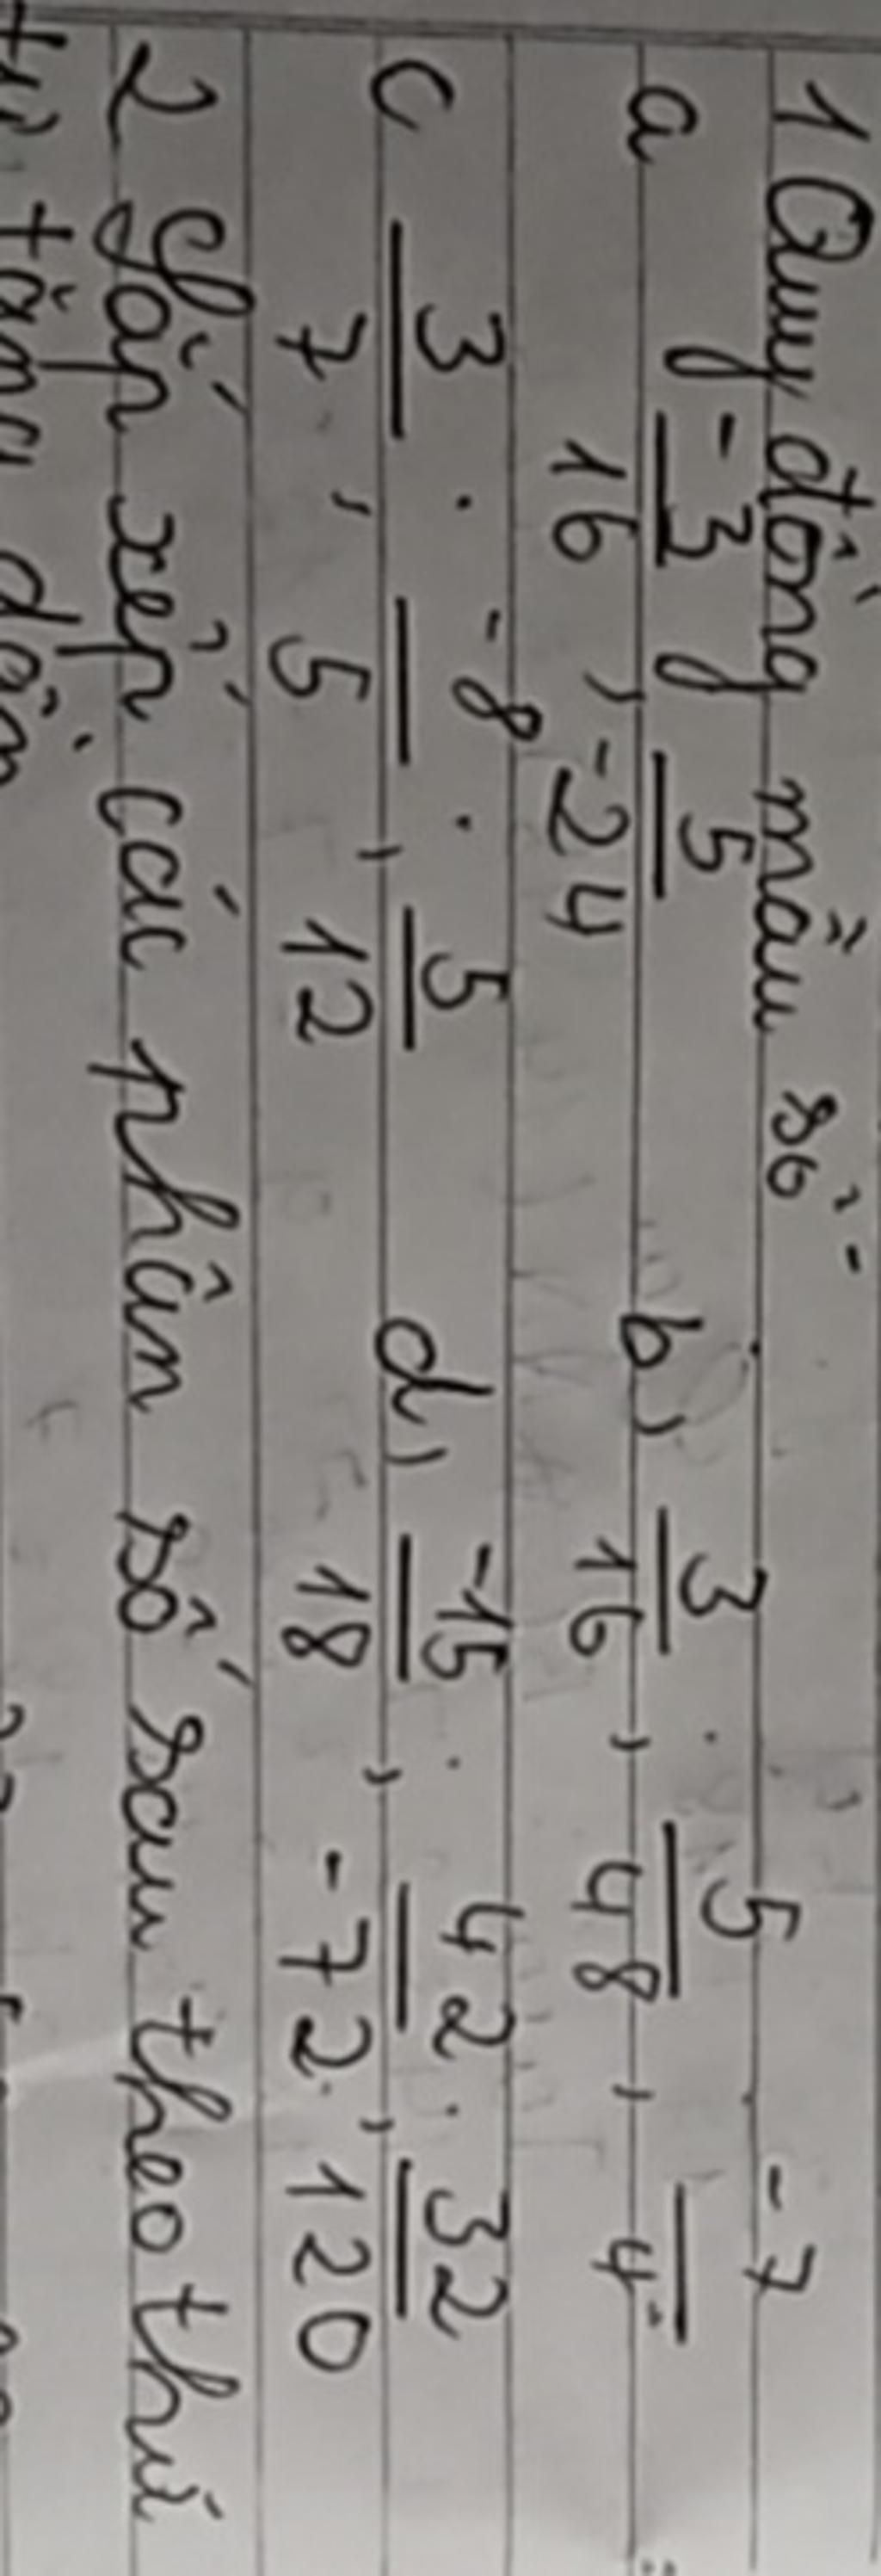 1 Quy đồng mẫu số -
a -3/16 , 5/-24 b, 3/16 , 5/48 , -7/4
c 3/7 , -8/5 , 5/12 d, -15/18 , 42/-72 , 32/120
2 Sắp xếp các phân số sau theo thứ
tự tăng dần